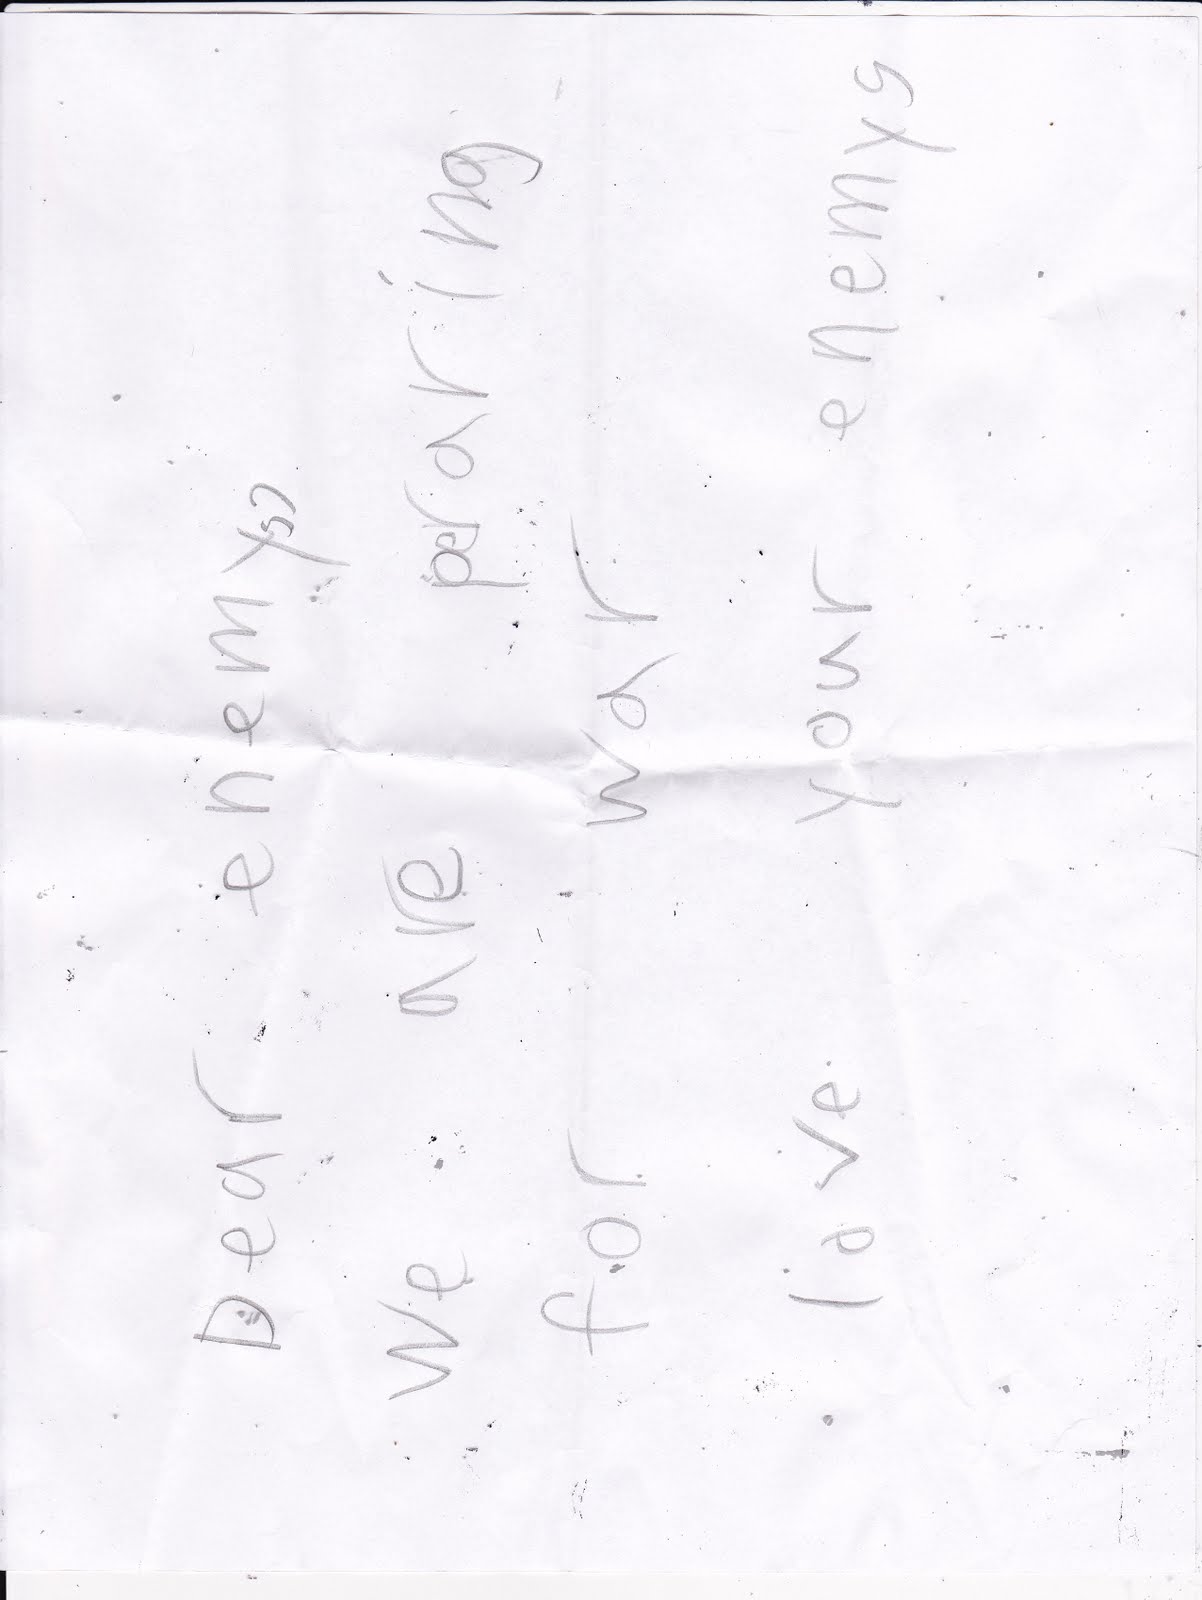 Dear enemys
We are peraring
for war
love your enemys